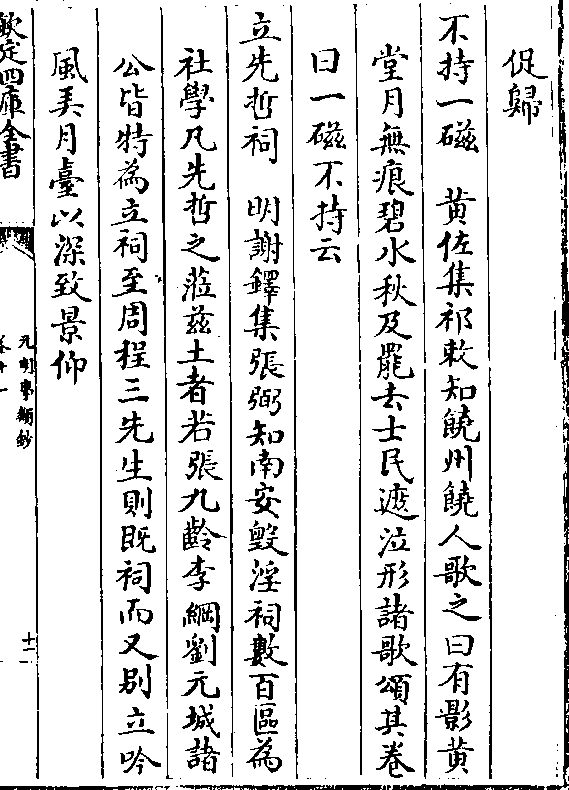 促歸
不持一磁　黄佐集祁敕知饒州饒人歌之曰有影黄
堂月無痕碧水秋及罷去士民遮泣形諸歌頌其卷
曰一磁不持云
立先哲祠　明謝鐸集張弼知南安毁淫祠數百區為
社學凡先哲之蒞兹土者若張九齡李綱劉元城諸
公皆特為立祠至周程三先生則既祠而又别立吟
風美月臺以深致景仰
欽定四庫全書
元明事類鈔
卷十一
十二